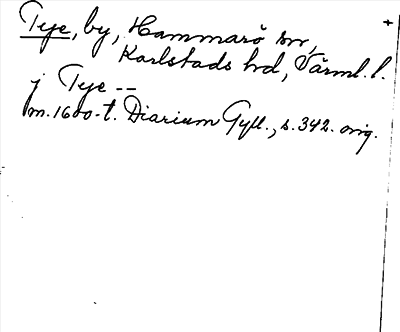 Tye, by, Hammarö sn,
Karlstads hd, Värml. l.
j Tye --
m. 1600-t. Diarium Gyll., s. 342. orig.